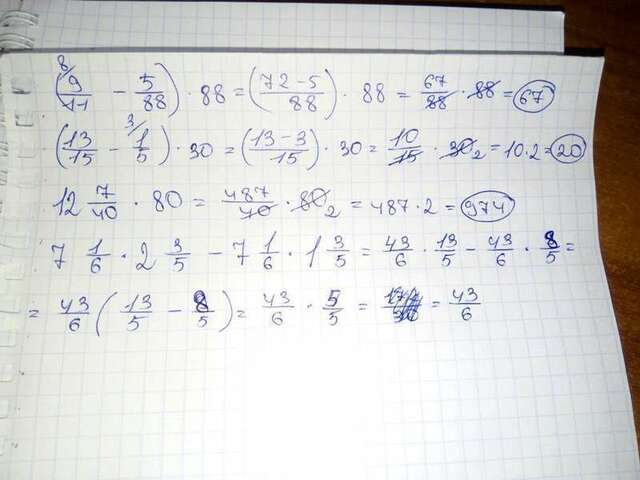 (⁸/ 9/11 - 5/88) · 88 = ((72-5)/88) · 88 = 67/88 · 88 = 67
(13/15 - ³/ 1/5) · 30 = ((13-3)/15) · 30 = 10/15 · 30 2 = 10·2 = 20
12 7/40 · 80 = 487/40 · 80 2 = 487·2 = 974
7 1/6 · 2 3/5 - 7 1/6 · 1 3/5 = 43/6 · 13/5 - 43/6 · 8/5 =
= 43/6 (13/5 - 8/5) = 43/6 · 5/5 = = 43/6